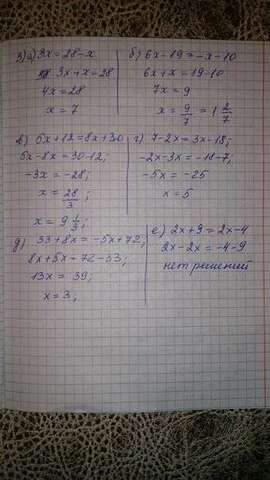 3) а) 3x = 28 - x
3x + x = 28
4x = 28
x = 7
б) 6x - 19 = -x - 10
6x + x = 19 - 10
7x = 9
x = 9/7 = 1 2/7
в) 5x + 12 = 8x + 30
5x - 8x = 30 - 12;
-3x = -28;
x = 28/3;
x = 9 1/3;
г) 7 - 2x = 3x - 18;
-2x - 3x = -18 - 7;
-5x = -25
x = 5
д) 33 + 8x = -5x + 72;
8x + 5x = 72 - 33;
13x = 39;
x = 3;
е) 2x + 9 = 2x - 4
2x - 2x = -4 - 9
нет решений